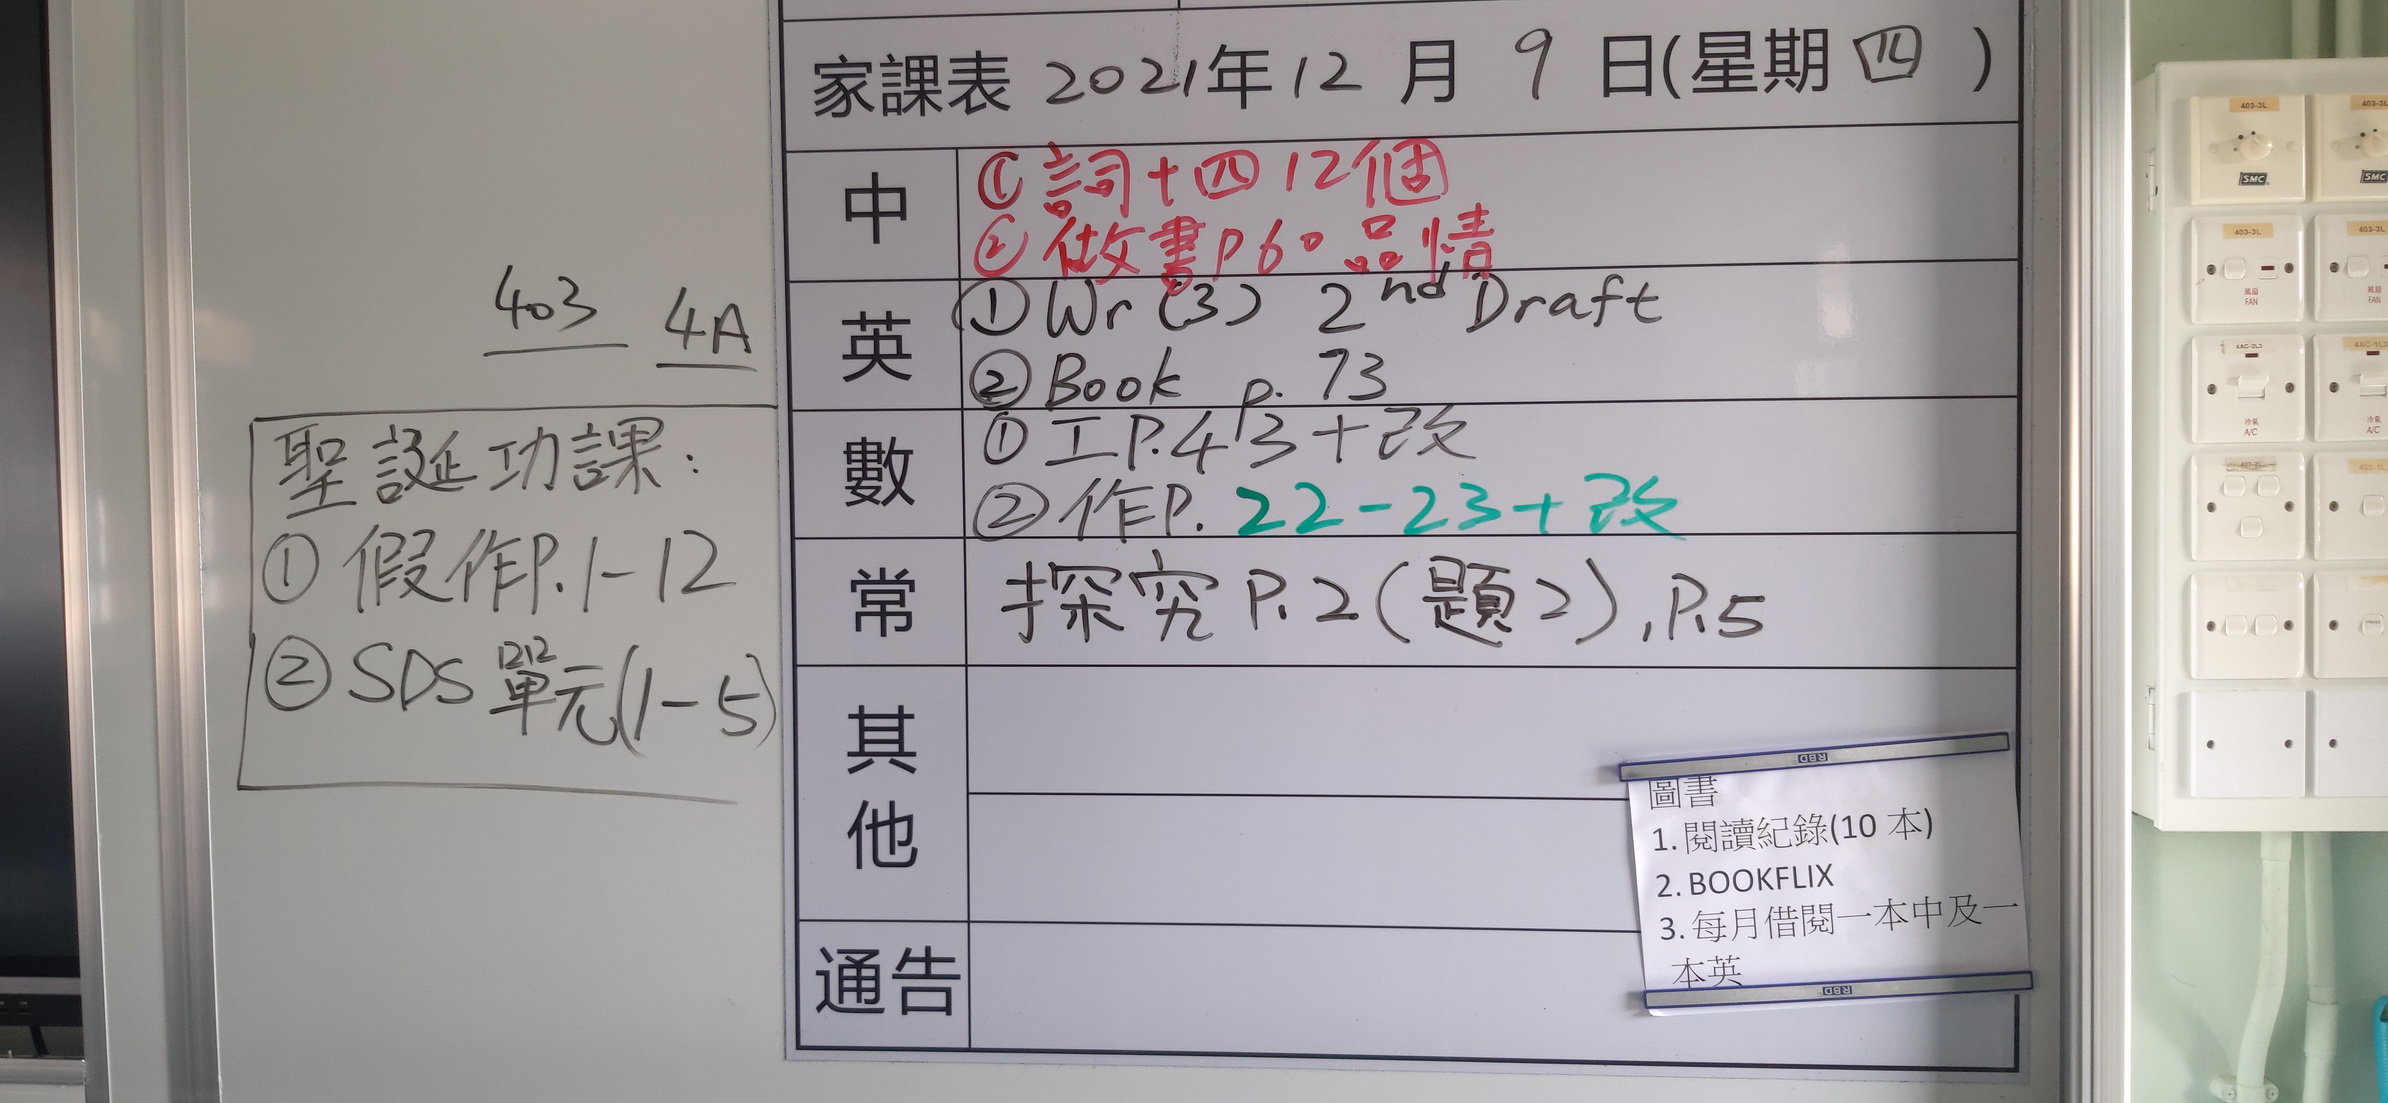 家課表 2021年12月9日(星期四)
中
① 詞十四12個
② 做書P60品情
英
① Wr (3) 2nd Draft
② Book p. 73
數
① 工P.43+改
② 作P. 22-23+改
常
探究 P.2(題2), P.5
其他
通告
403 4A
聖誕功課:
① 假作P.1-12
② SDS 單元(1-5)
圖書
1. 閱讀紀錄(10 本)
2. BOOKFLIX
3. 每月借閱一本中及一
本英
RBD
RBD
403-3L
403-3L
SMC
SMC
403-3L
403-3L
風扇
FAN
風扇
FAN
4AC-2L3
4AC-1L3
冷氣
A/C
冷氣
A/C